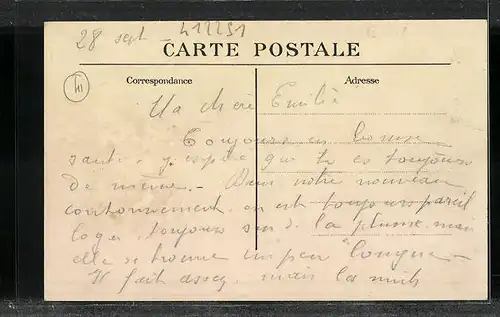 28 sept 412251
CARTE POSTALE
Correspondance
Adresse
Ma chère Emilie
Toujours en bonne
santé. j'espère que tu es toujours
de même. - Dans notre nouveau
cantonnement on est toujours pareil
logé, toujours sur la plume, mais
elle se trouve un peu longue -
Il fait assez mais les nuits